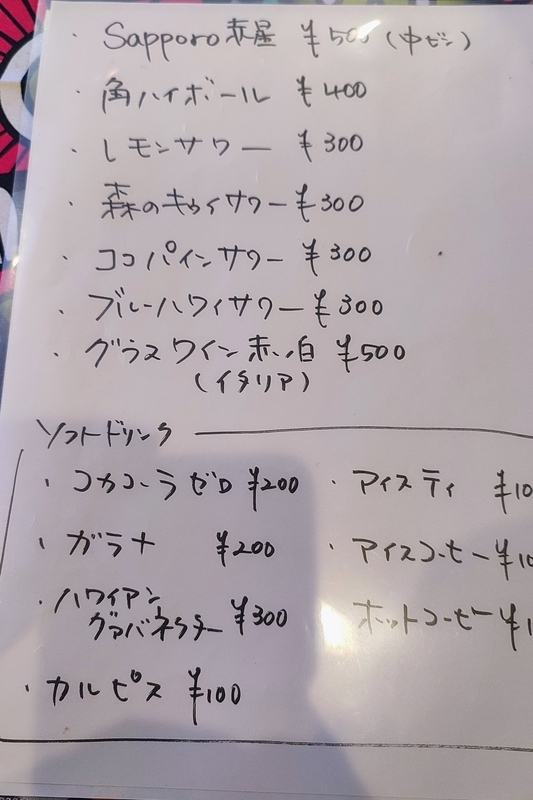 ・Sapporo 赤星 ¥500 (中ビン)
・角ハイボール ¥400
・レモンサワー ¥300
・森のキウイサワー ¥300
・ココパインサワー ¥300
・ブルーハワイサワー ¥300
・グラスワイン 赤、白 ¥500
(イタリア)
ソフトドリンク
・コカコーラゼロ ¥200
・ガラナ ¥200
・ハワイアン
グァバネクター ¥300
・カルピス ¥100
・アイスティ ¥10
・アイスコーヒー ¥10
ホットコーヒー ¥1